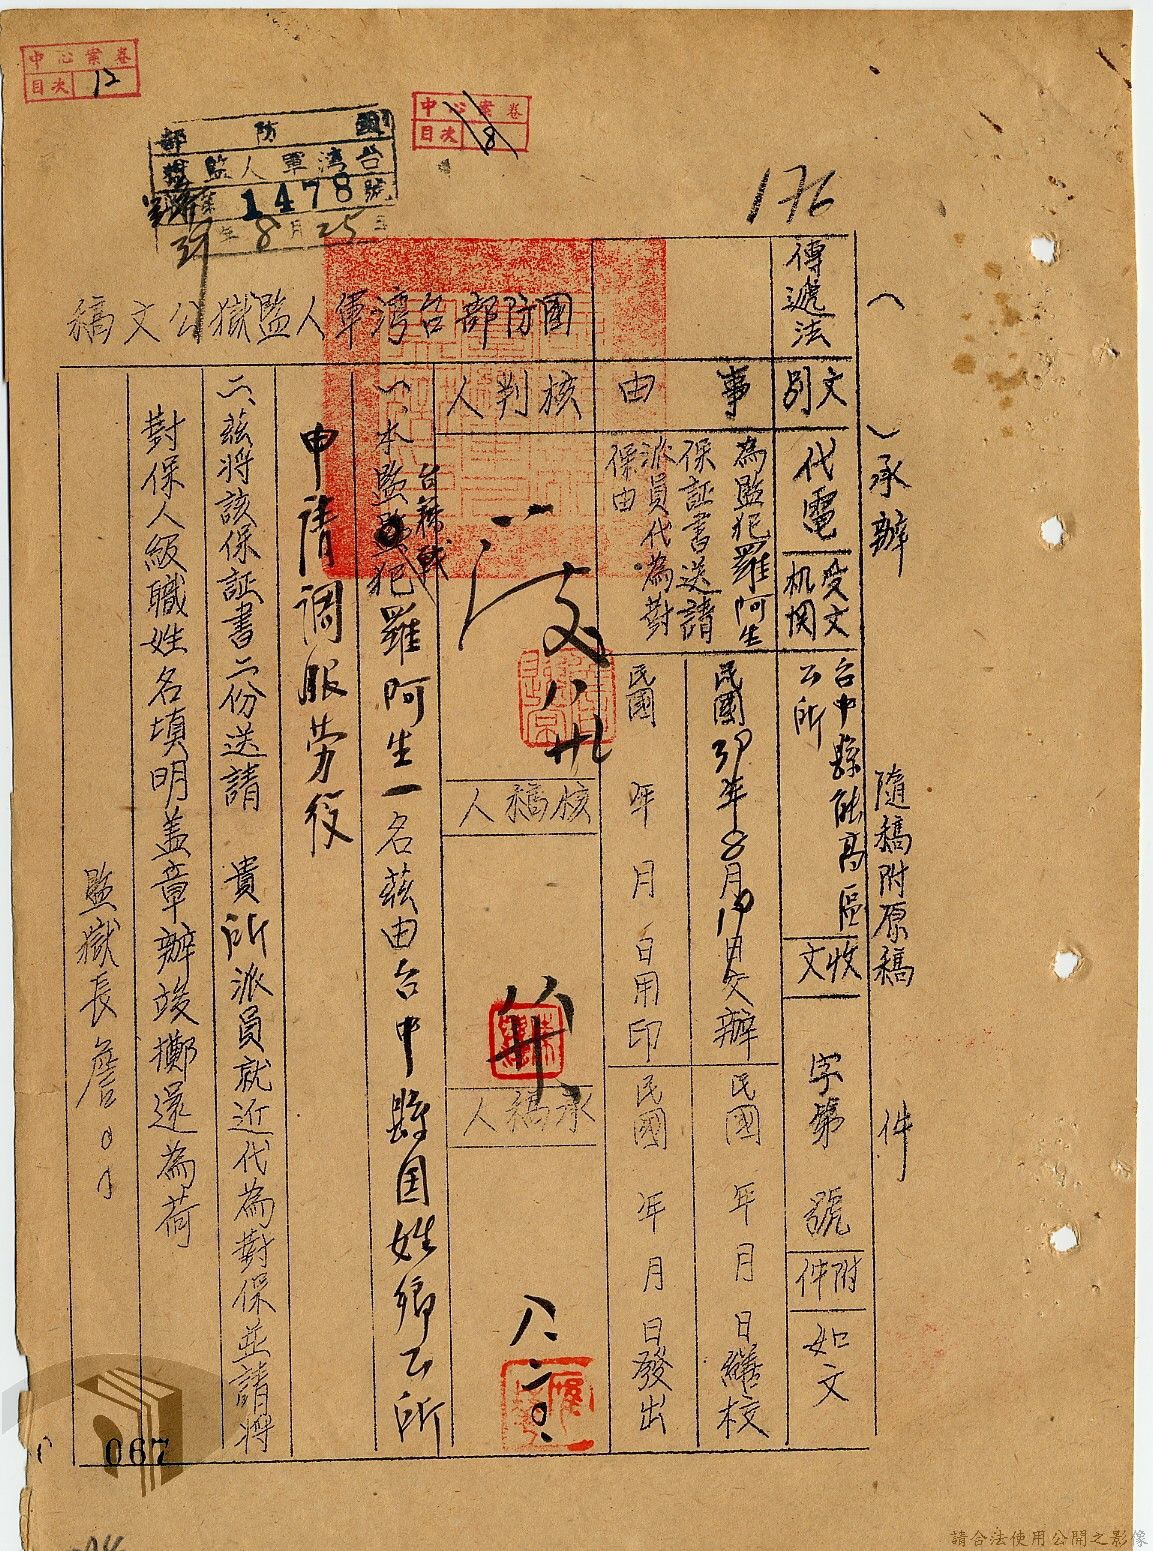 中心案卷
目次 12
中心案卷
目次 8
國防部
台湾軍人監獄
1478號
39年8月25
176
（　）承辦　隨稿附原稿　件
國防部台湾軍人監獄公文稿
傳遞法
文別
代電
受文机関
台中縣能高區公所
收文
字第　號
附件
如文
事由
為監犯羅阿生
保証書送請
派員代為對
保由
民國39年8月19日交辦
民國　年　月　日繕校
民國　年　月　日用印
民國　年　月　日發出
核判人
核稿人
承稿人
八.二〇.
一、本監台籍戰犯羅阿生一名茲由台中縣国姓鄉公所
申請調服劳役
二、茲将該保証書二份送請　貴所派員就近代為對保並請将
對保人級職姓名填明盖章辦竣擲還為荷
監獄長詹〇〇
067
請合法使用公開之影像